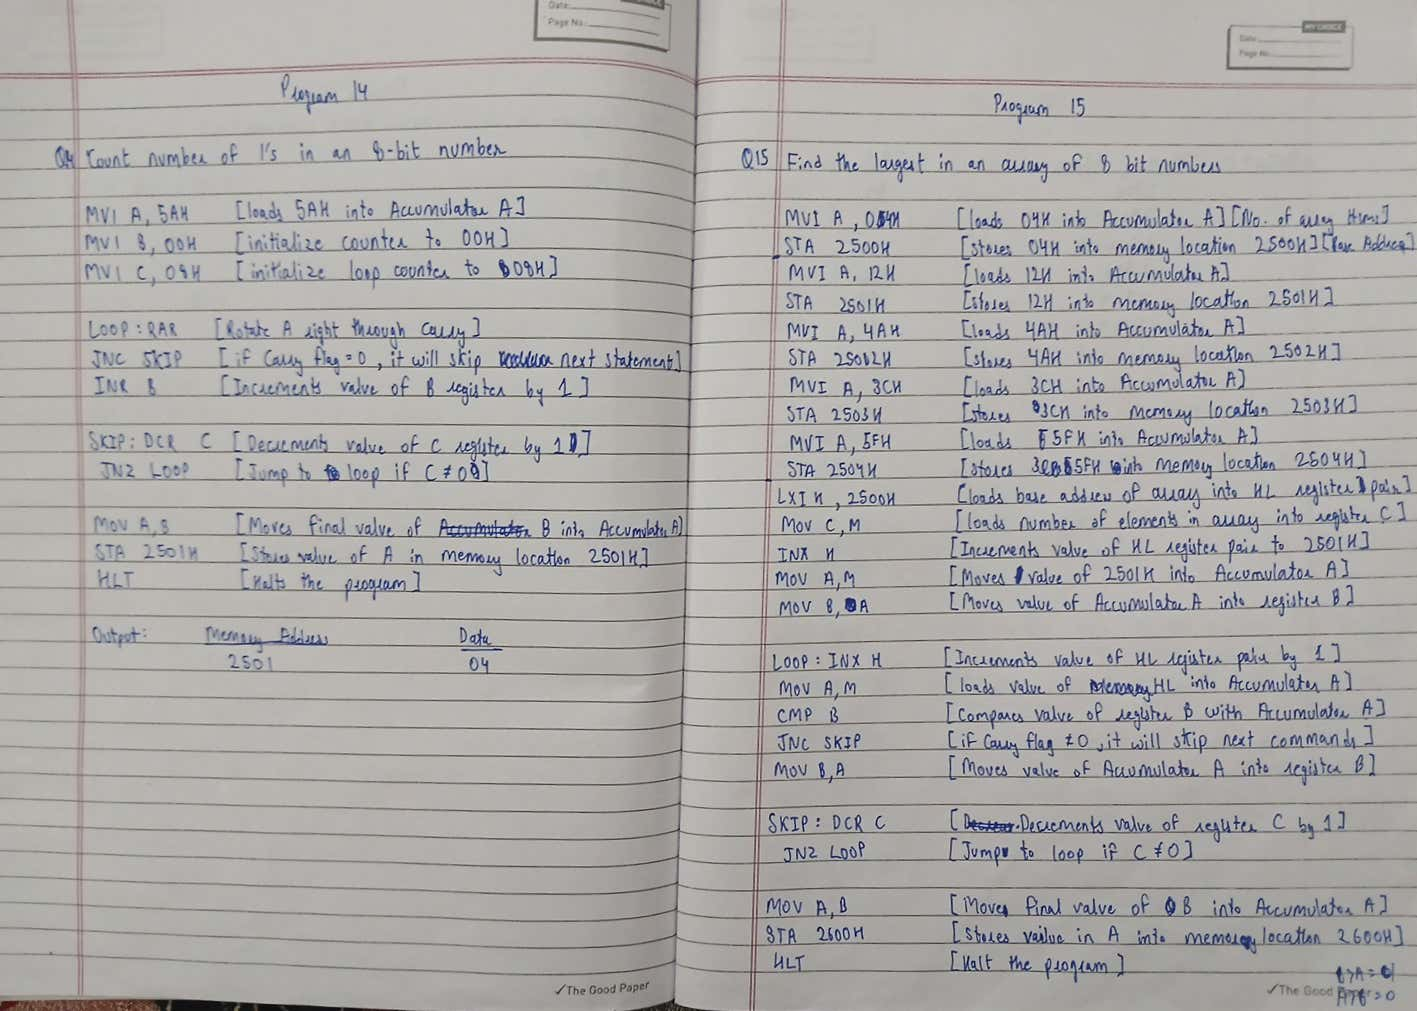 Date:
Page No:
Program 14
Q14 Count number of 1's in an 8-bit number
MVI A, 5AH [loads 5AH into Accumulator A]
MVI B, 00H [initialize counter to 00H]
MVI C, 08H [initialize loop counter to 08H]
LOOP : RAR [Rotate A right through Carry]
JNC SKIP [if Carry flag = 0, it will skip next statement]
INR B [Increments value of B register by 1]
SKIP: DCR C [Decrements value of C register by 1]
JNZ LOOP [Jump to loop if C ≠ 00]
MOV A, B [Moves final value of Accumulator B into Accumulator A]
STA 2501H [Stores value of A in memory location 2501H]
HLT [Halts the program]
Output: Memory Address Data
2501 04
✓The Good Paper
Date:
Page No:
Program 15
Q15 Find the largest in an array of 8 bit numbers
MVI A, 04H [loads 04H into Accumulator A] [No. of array items]
STA 2500H [Stores 04H into memory location 2500H] [Base Address]
MVI A, 12H [loads 12H into Accumulator A]
STA 2501H [Stores 12H into memory location 2501H]
MVI A, 4AH [loads 4AH into Accumulator A]
STA 2502H [Stores 4AH into memory location 2502H]
MVI A, 3CH [loads 3CH into Accumulator A]
STA 2503H [Stores 3CH into memory location 2503H]
MVI A, 5FH [loads 5FH into Accumulator A]
STA 2504H [Stores 5FH into memory location 2504H]
LXI H, 2500H [loads base address of array into HL register pair]
MOV C, M [loads number of elements in array into register C]
INX H [Increments value of HL register pair to 2501H]
MOV A, M [Moves value of 2501H into Accumulator A]
MOV B, A [Moves value of Accumulator A into register B]
LOOP : INX H [Increments value of HL register pair by 1]
MOV A, M [loads value of HL into Accumulator A]
CMP B [Compares value of register B with Accumulator A]
JNC SKIP [if Carry flag ≠ 0, it will skip next commands]
MOV B, A [Moves value of Accumulator A into register B]
SKIP: DCR C [Decrements value of register C by 1]
JNZ LOOP [Jump to loop if C ≠ 0]
MOV A, B [Moves final value of B into Accumulator A]
STA 2600H [Stores value in A into memory location 2600H]
HLT [Halt the program]
✓The Good Paper